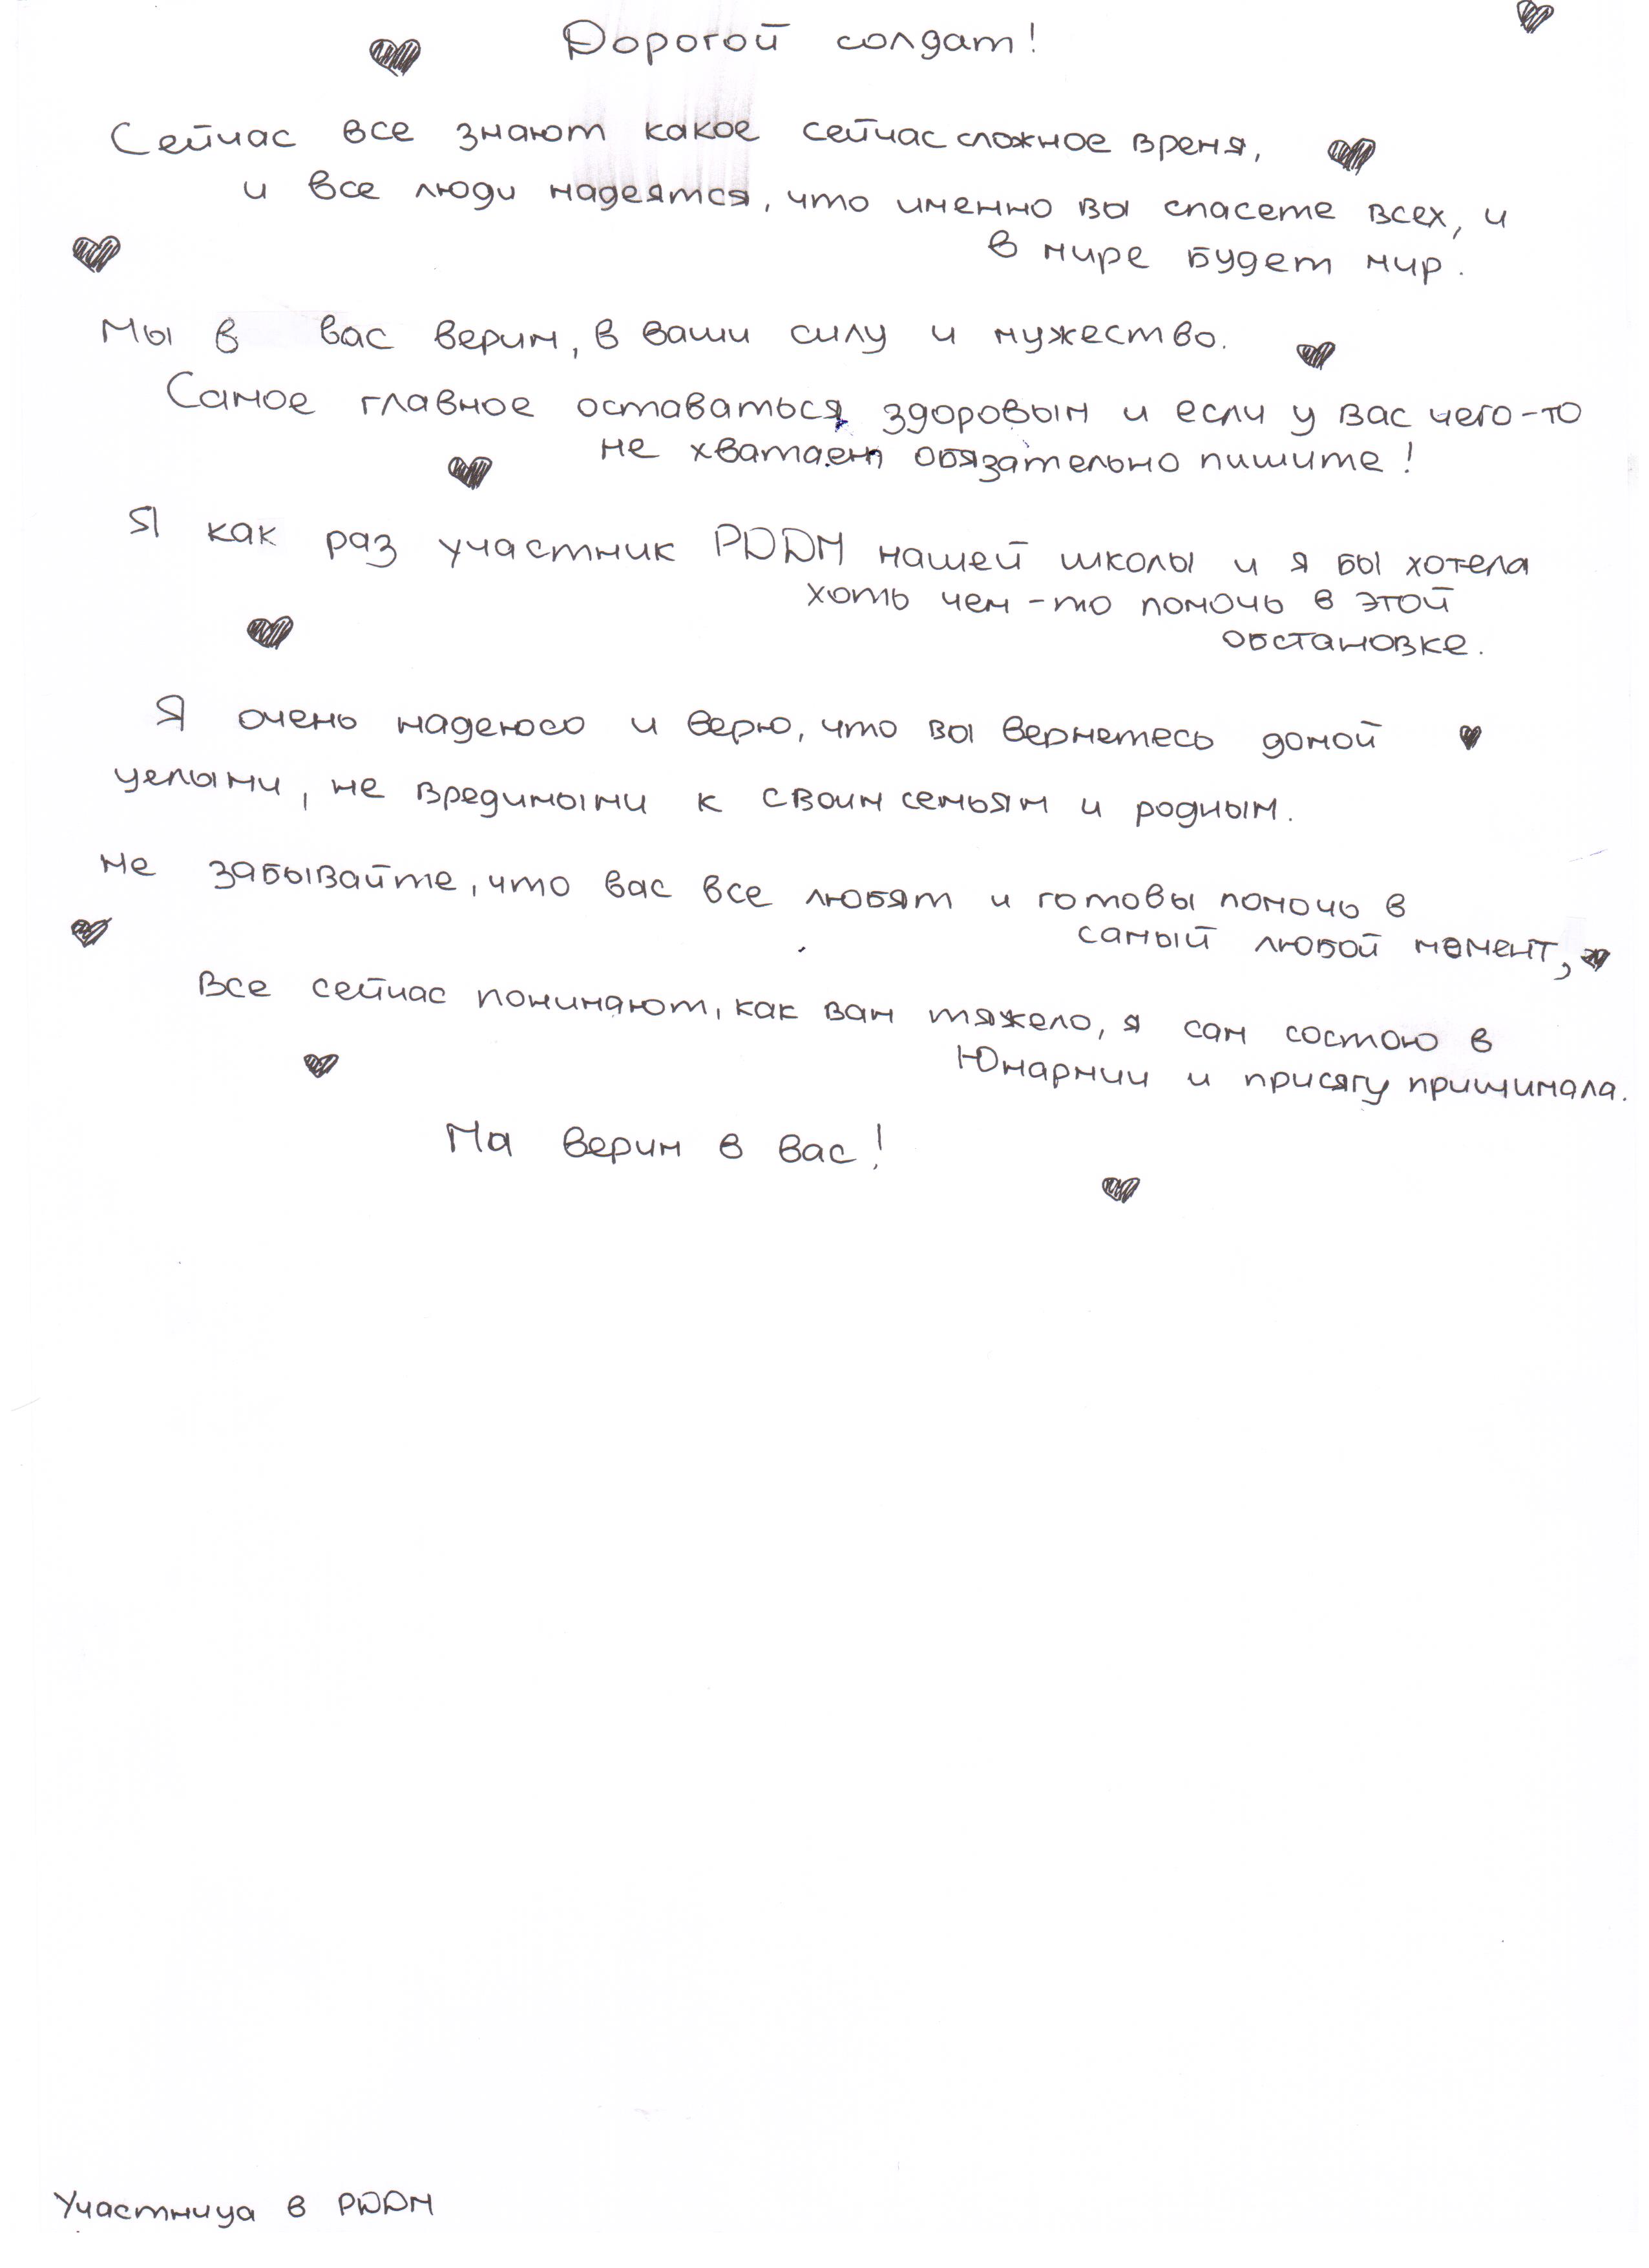 Дорогой солдат!
Сейчас все знают какое сейчас сложное время,
и все люди надеятся, что именно вы спасете всех, и
в мире будет мир.
Мы в вас верим, в ваши силу и мужество.
Самое главное оставаться здоровым и если у вас чего-то
не хватает обязательно пишите!
Я как раз участник РДДМ нашей школы и я бы хотела
хоть чем-то помочь в этой
обстановке.
Я очень надеюсь и верю, что вы вернетесь домой
целыми, не вредимыми к своим семьям и родным.
Не забывайте, что вас все любят и готовы помочь в
самый любой момент,
Все сейчас понимают, как вам тяжело, я сам состою в
Юнармии и присягу принимала.
Мы верим в вас!
Участница в РДДМ